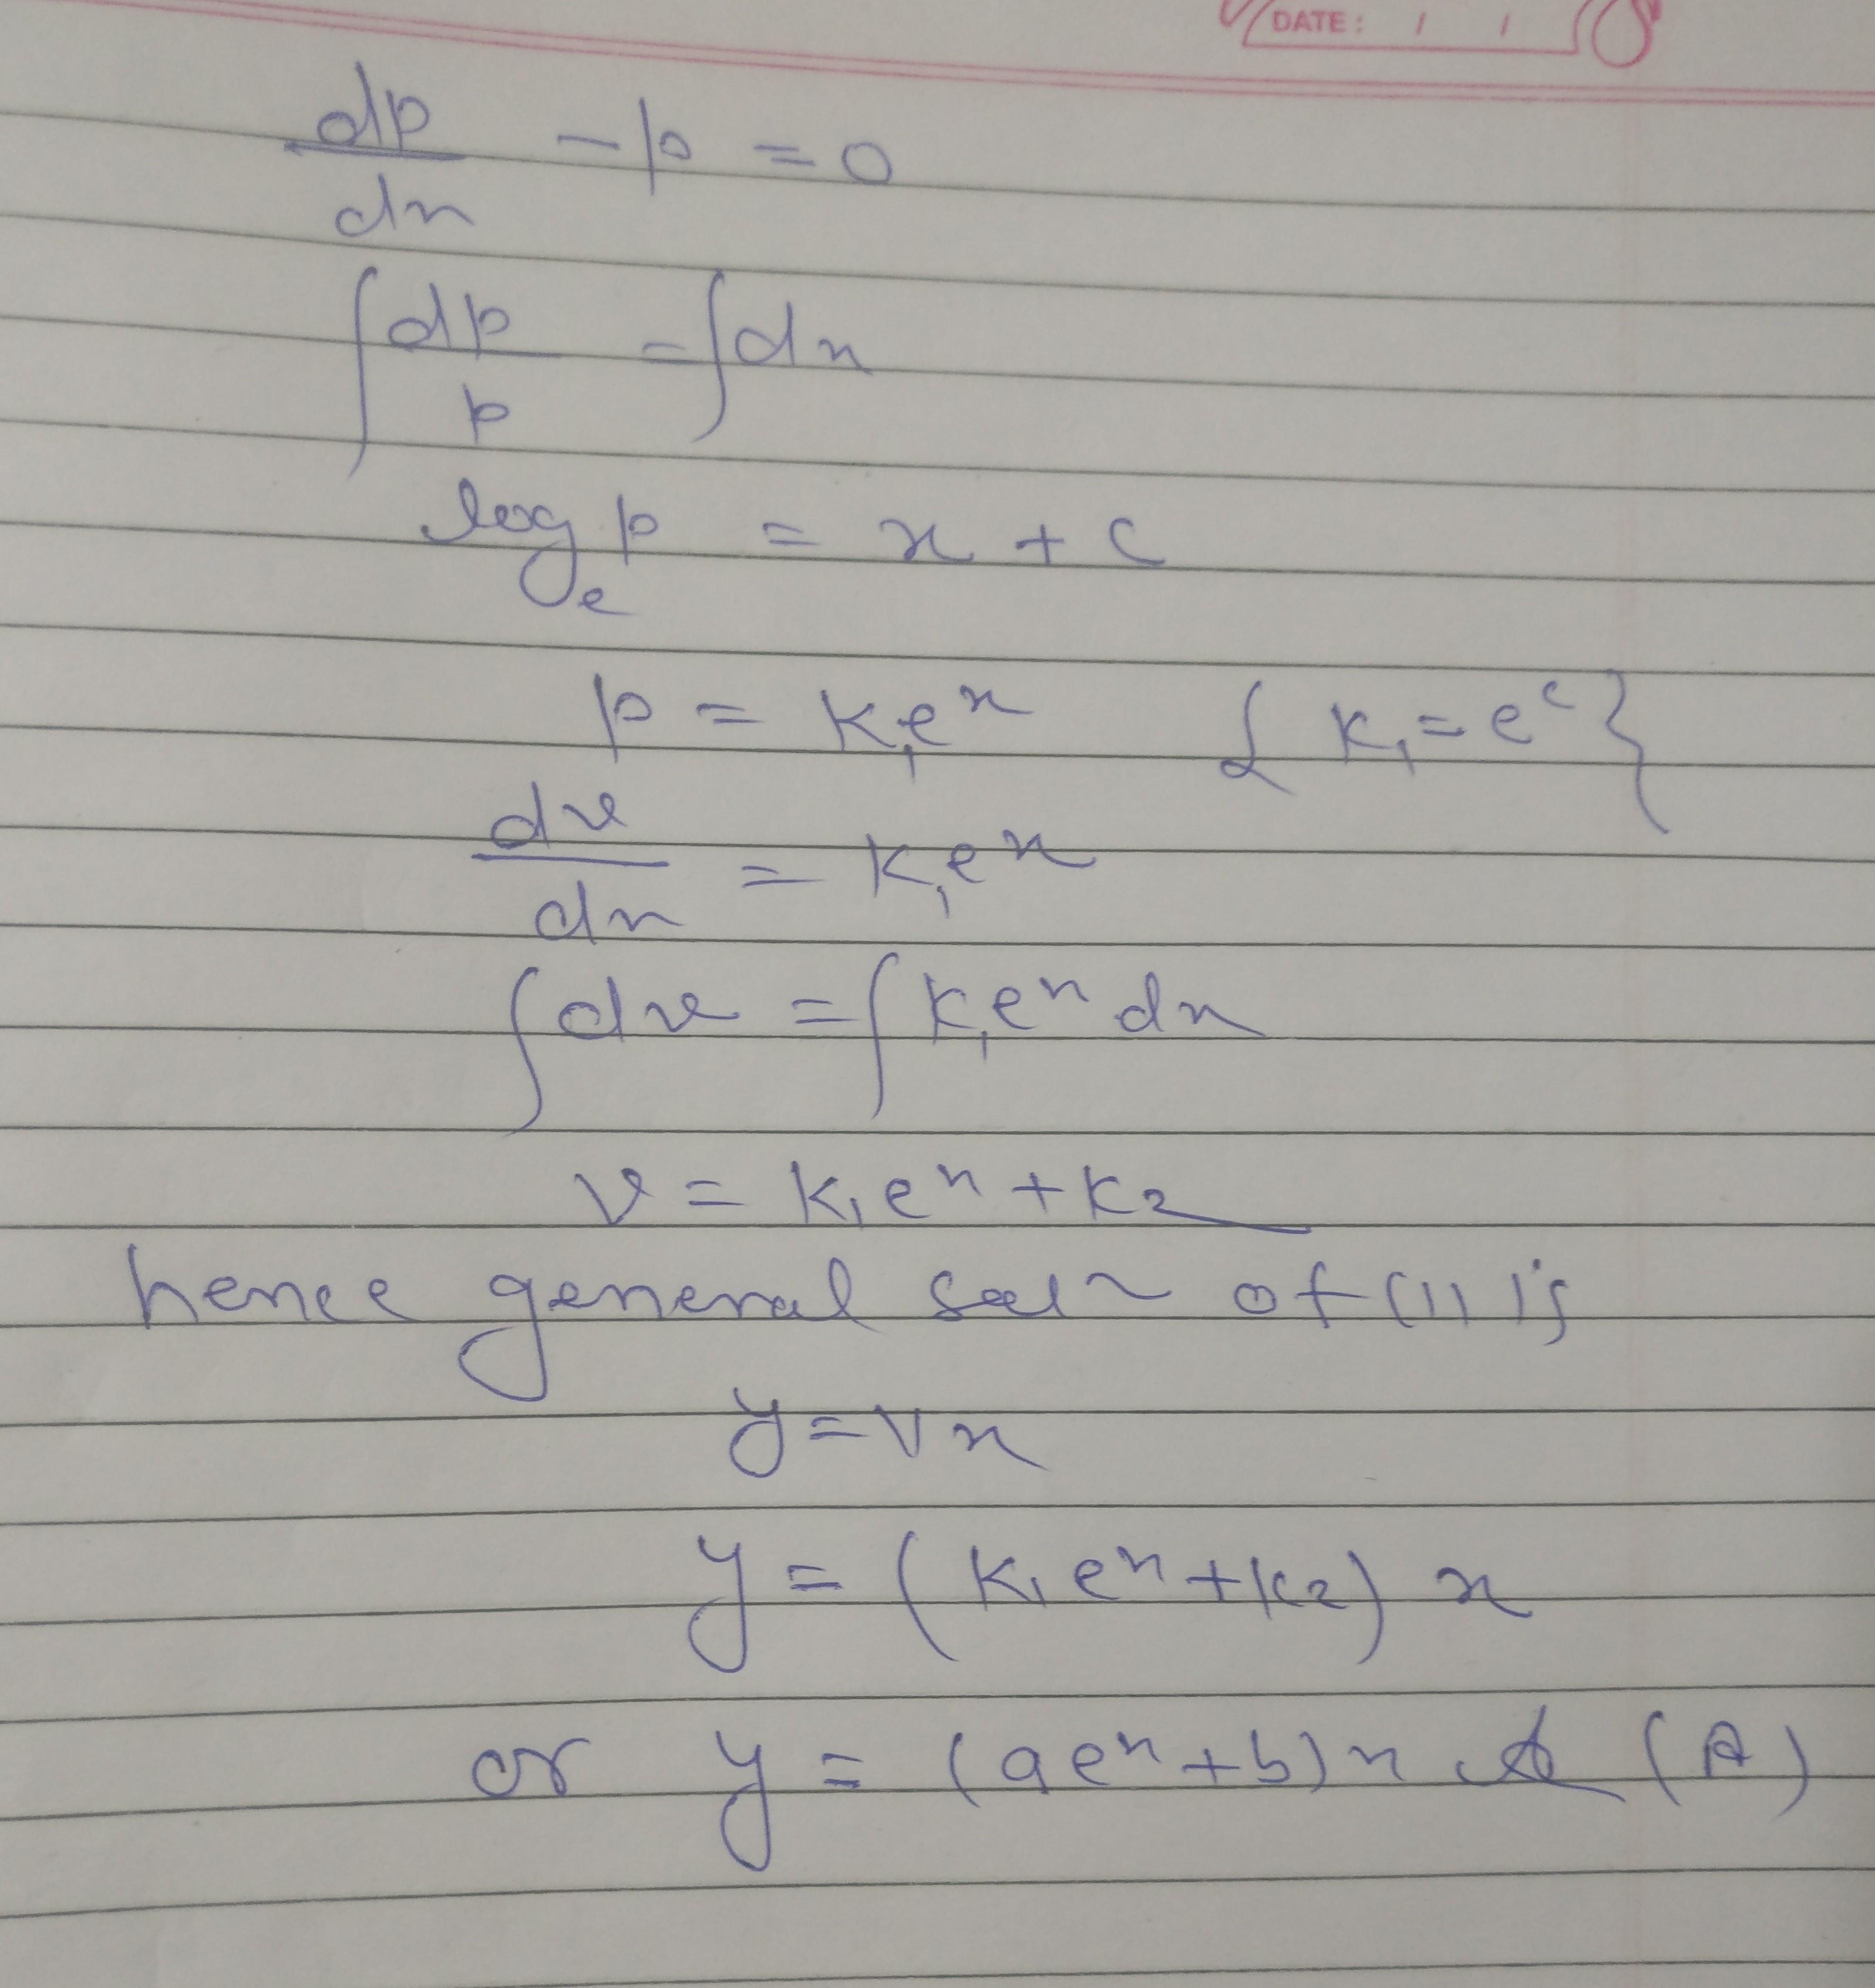 DATE: / /
dp/dx - p = 0
∫ dp/p = ∫ dx
logₑ p = x + c
p = k₁eˣ { k₁ = eᶜ }
dv/dx = k₁eˣ
∫ dv = ∫ k₁eˣ dx
v = k₁eˣ + k₂
hence general solⁿ of (1) is
y = vx
y = (k₁eˣ + k₂) x
or y = (aeˣ + b) x (A)